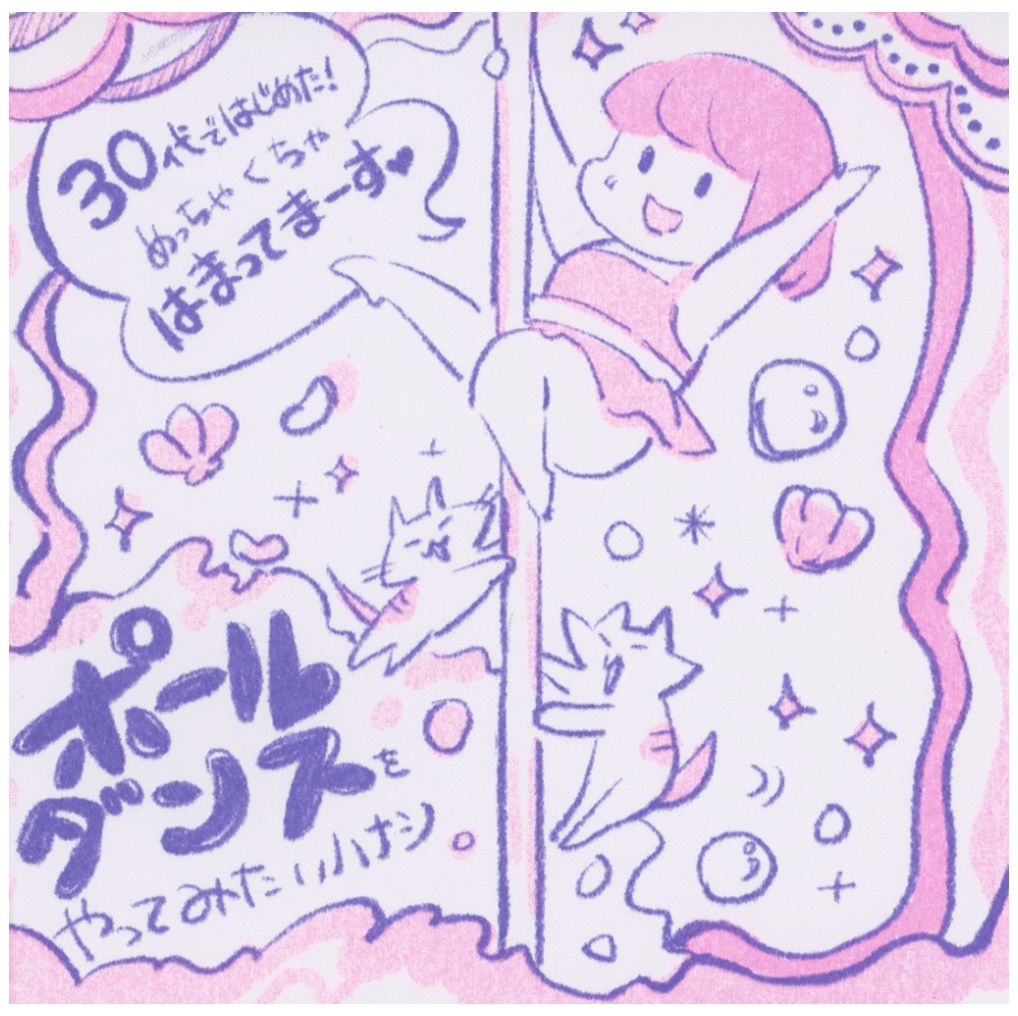 30代ではじめた!
めっちゃくちゃ
はまってまーす♥
ポール
ダンスを
やってみたいハナシ